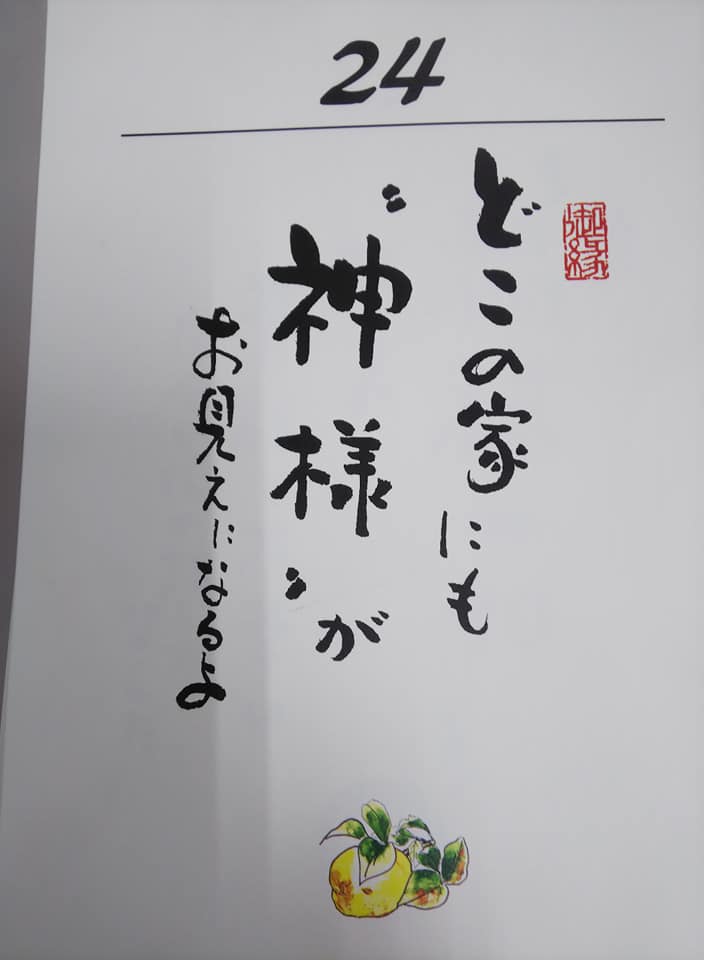 24
御縁
どこの家にも
〝神様〟が
お見えになるよ